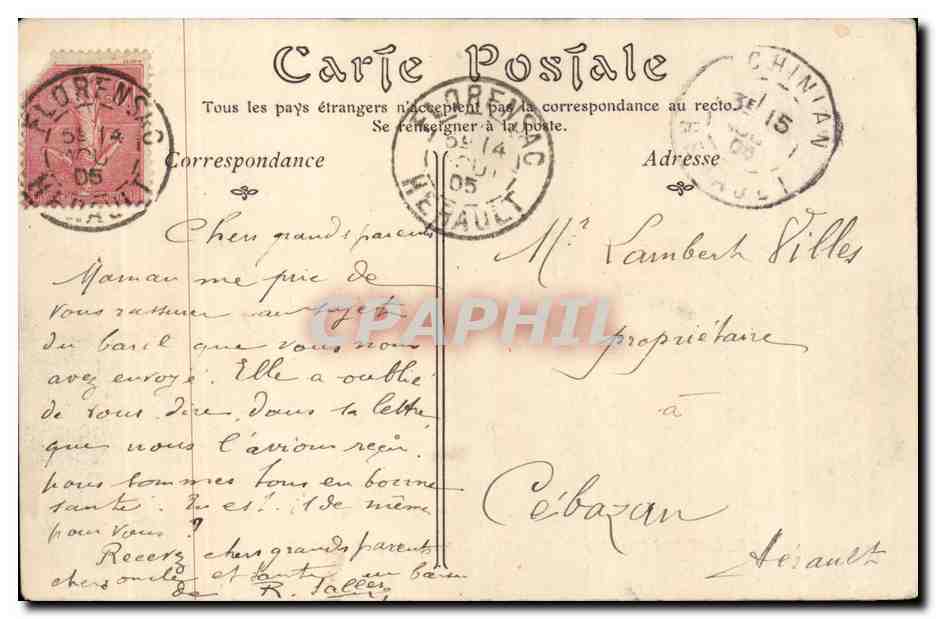 Carte Postale
Tous les pays étrangers n'acceptent pas la correspondance au recto.
Se renseigner à la poste.
Correspondance
Adresse
FLORENSAC
5E 14
05
HERAULT
FLORENSAC
5E 14
05
HERAULT
CHINIAN
3E 15
05
HERAULT
Chers grands parents
Maman me prie de
vous rassurer au sujet
du baril que vous nous
avez envoyé. Elle a oublié
de vous dire dans sa lettre
que nous l'avions reçu.
nous sommes tous en bonne
santé. En est-il de même
pour vous ?
Recevez chers grands parents
chers oncle et tante un baiser
de R. Salles
Mr Lambert Villes
propriétaire
à
Cébazan
Hérault
CPAPHIL